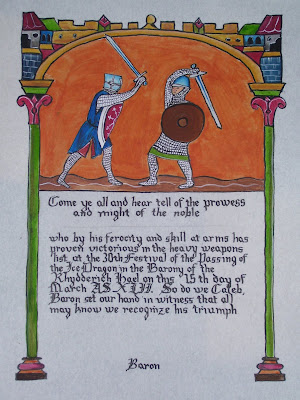 Come ye all and hear tell of the prowess
and might of the noble
who by his ferocity and skill at arms has
proven victorious in the heavy weapons
list, at the 30th Festival of the Passing of
the Ice Dragon in the Barony of the
Rhydderich Hael on this 15th day of
March AS XLII. So do we Caleb,
Baron set our hand in witness that all
may know we recognize his triumph
Baron